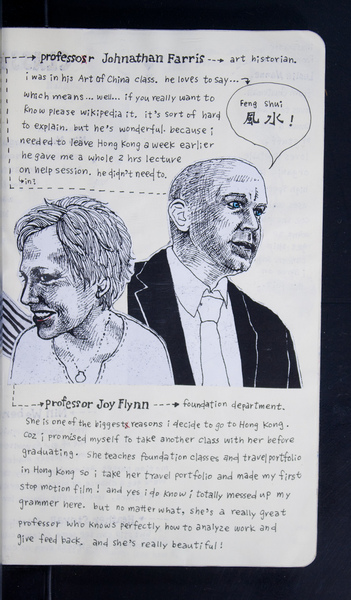 professor Johnathan Farris --→ art historian.
i was in his Art of China class. he loves to say...
which means... well... if you really want to
know please wikipedia it. it's sort of hard
to explain. but he's wonderful. because i
needed to leave Hong Kong a week earlier
he gave me a whole 2 hrs lecture
on help session. he didn't need to.
in1
Feng Shui
風水!
professor Joy Flynn ---→ foundation department.
She is one of the biggest reasons i decide to go to Hong Kong.
coz i promised myself to take another class with her before
graduating. She teaches foundation classes and travel portfolio
in Hong Kong so i take her travel portfolio and made my first
stop motion film! and yes i do know i totally messed up my
grammer here. but no matter what, she's a really great
professor who knows perfectly how to analyze work and
give feed back. and she's really beautiful!